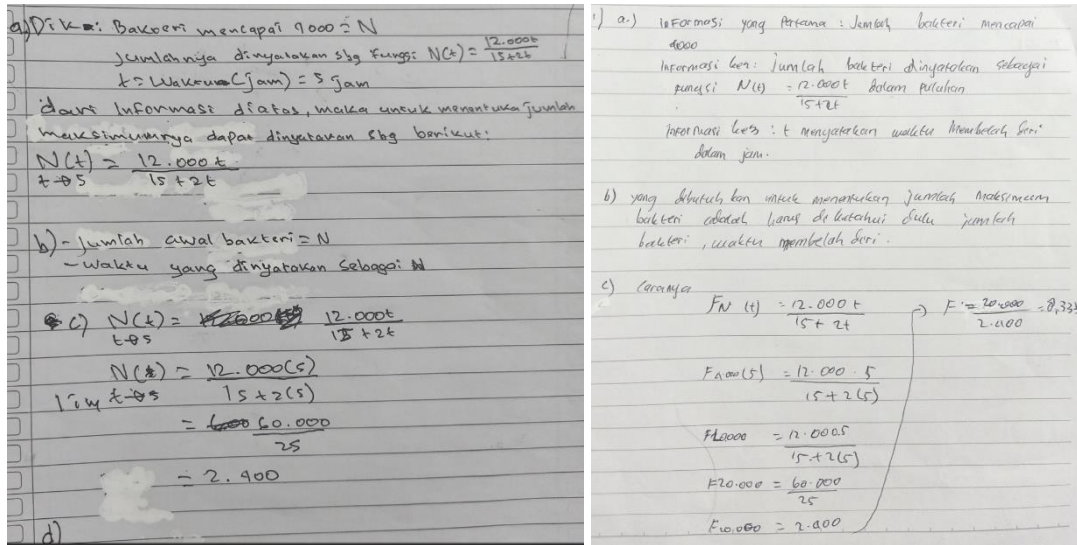 a) Dik: Bakteri mencapai 4000 = N
Jumlahnya dinyatakan sbg fungsi N(t) = 12.000t / 15+2t
t = Waktu (jam) = 5 jam
dari Informasi diatas, maka untuk menentuka jumlah
maksimumnya dapat dinyatakan sbg berikut:
N(t) = 12.000t / 15 + 2t
t→5
b) - Jumlah awal bakteri = N
- Waktu yang dinyatakan sebagai
c) N(t) = 12.000t / 15 + 2t
t→5
N(t) = 12.000(5) / 15 + 2(5)
lim t→5
= 60.000 / 25
= 2.400
d)
1) a.) Informasi yang Pertama : Jumlah bakteri mencapai
4000
Informasi ke2 : jumlah bakteri dinyatakan sebagai
fungsi N(t) = 12.000t / 15+2t dalam puluhan
Informasi ke3 : t menyatakan waktu membelah diri
dalam jam.
b) yang dibutuhkan untuk menentukan jumlah maksimum
bakteri adalah harus diketahui dulu jumlah
bakteri, waktu membelah diri.
c) Caranya
FN (t) = 12.000 t / 15 + 2t
F = 20.000 / 2.400 = 8,333
F4.000(5) = 12.000 . 5 / 15 + 2(5)
= 12.000 5 / 15 + 2(5)
F20.000 = 60.000 / 25
= 2.400